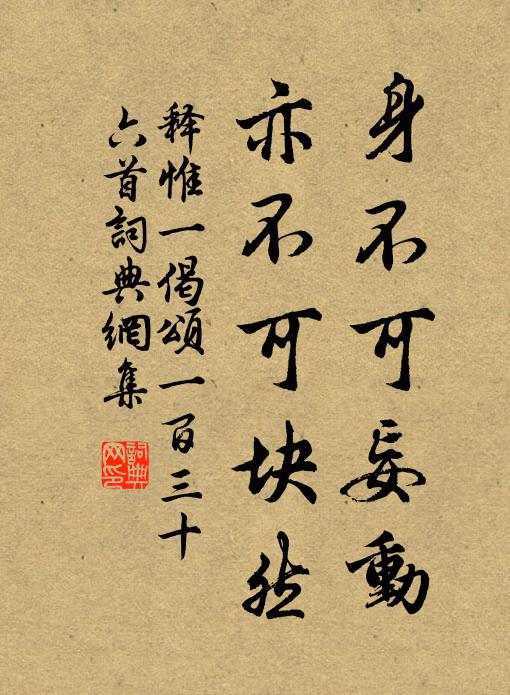 身不可妄動
亦不可块然
释惟一偈頌一百三十
六首詞典網集
詞典网印